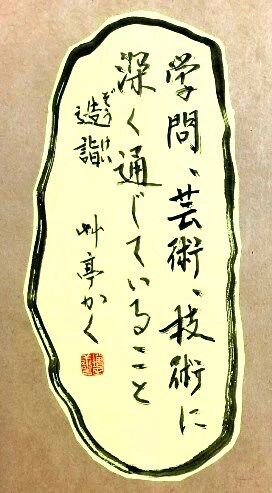 学問、芸術、技術に
深く通じていること
ぞうけい
造詣
艸亭かく